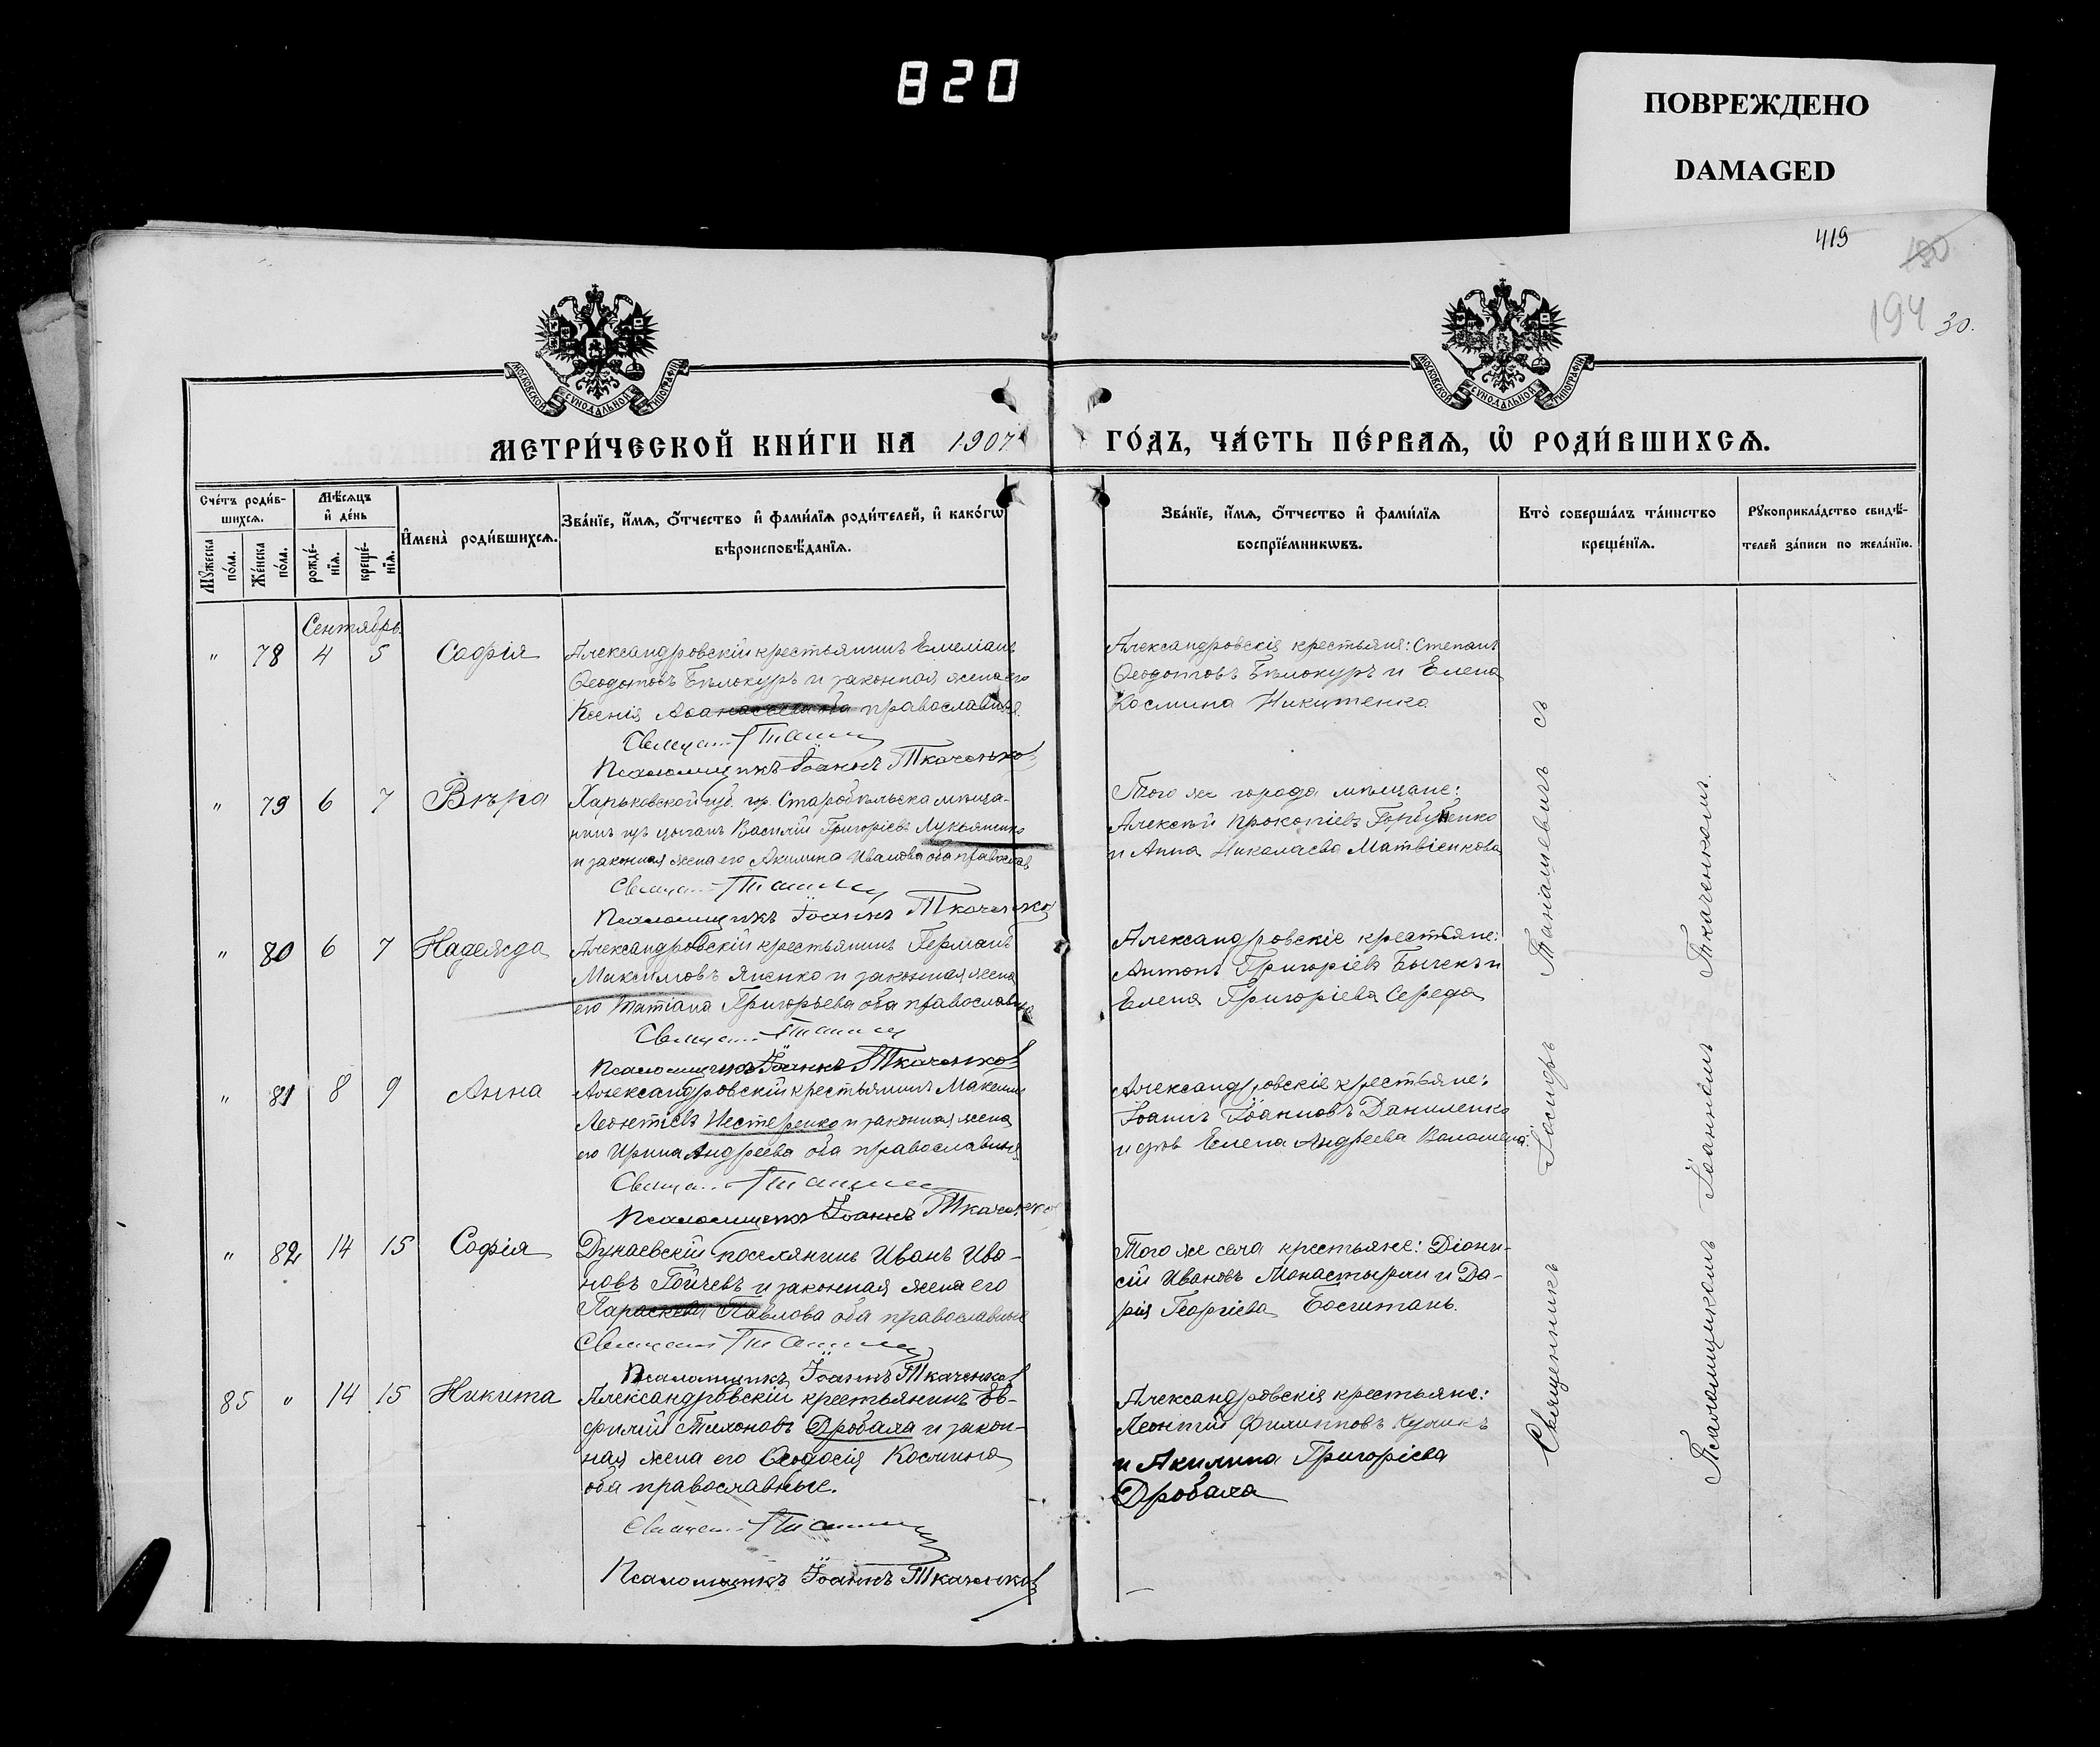 820
ПОВРЕЖДЕНО
DAMAGED
419
180
194
30.
МОСКОВСКОЙ СѴНОДАЛЬНОЙ ТИПОГРАФІИ
МОСКОВСКОЙ СѴНОДАЛЬНОЙ ТИПОГРАФІИ
МЕТРИ́ЧЕСКОЙ КНИ́ГИ НА 1907
ГО́ДЪ, ЧА́СТЬ ПЕ́РВАѦ, Ѿ РОДИ́ВШИХСѦ.
Сче́тъ роди́в-
шихсѧ.
Мѣ́сѧцъ
и҆ де́нь
Мꙋ́жеска
по́ла.
Же́нска
по́ла.
рожде́-
нїѧ.
креще́-
нїѧ.
И҆мена̀ роди́вшихсѧ.
Зва́нїе, и҆́мѧ, ѻ҆́тчество и҆ фами́лїѧ роди́телей, и҆ како́гѡ
вѣроисповѣ́данїѧ.
Зва́нїе, и҆́мѧ, ѻ҆́тчество и҆ фами́лїѧ
воспрїе́мникѡвъ.
Кто̀ соверша́лъ та́инство
креще́нїѧ.
Рꙋкоприкла́дство свидѣ́-
телей за́писи по жела́нїю.
Сентябрь.
" 78 4 5 Софія
Александровскій крестьянинъ Емеліанъ
Ѳеодотовъ Бѣлокуръ и законная жена его
Ксенія Аѳанасіева оба православныя.
Псаломщикъ Іоаннъ Ткаченковъ
Александровскія крестьяне: Степанъ
Ѳеодотовъ Бѣлокуръ и Елена
Космина Никитенко
" 79 6 7 Вѣра
Харьковской губ. гор. Старобѣльска мѣща-
нинъ изъ цыганъ Василій Григоріевъ Лукьяненко
и законная жена его Акилина Иванова оба православ
Псаломщикъ Іоаннъ Ткаченковъ
Того же города мѣщане:
Алексѣй Прокопіевъ Горбуненко
и Анна Николаева Матвіенкова
" 80 6 7 Надежда
Александровскій крестьянинъ Германъ
Максимовъ Яценко и законная жена
его Татіана Григорьева оба православные
Псаломщикъ Іоаннъ Ткаченковъ
Александровскіе крестьяне:
Антонъ Григоріевъ Бычекъ и
Елена Григоріева Середа
" 81 8 9 Анна
Александровскій крестьянинъ Максимъ
Леонтіевъ Нестеренко и законная жена
его Ирина Андреева оба православныя
Псаломщикъ Іоаннъ Ткаченковъ
Александровскіе крестьяне:
Іоаннъ Іоанновъ Даниленко
и Елена Андреева
" 82 14 15 Софія
Дунаевскій поселянинъ Иванъ Ива-
новъ Гойчевъ и законная жена его
Параскева Павлова оба православные
Псаломщикъ Іоаннъ Ткаченковъ
Того же села крестьяне: Діони-
сій Ивановъ Монастырли и Да-
рія Георгіева
85 " 14 15 Никита
Александровскій крестьянинъ Ев-
филій Тихоновъ Дробаха и закон-
ная жена его Ѳеодосія Космина
оба православные.
Псаломщикъ Іоаннъ Ткаченковъ
Александровскія крестьяне:
Леонтій Филипповъ Куликъ
и Акилина Григоріева
Дробаха
Священникъ съ
Псаломщикомъ Іоанномъ Ткаченковымъ.